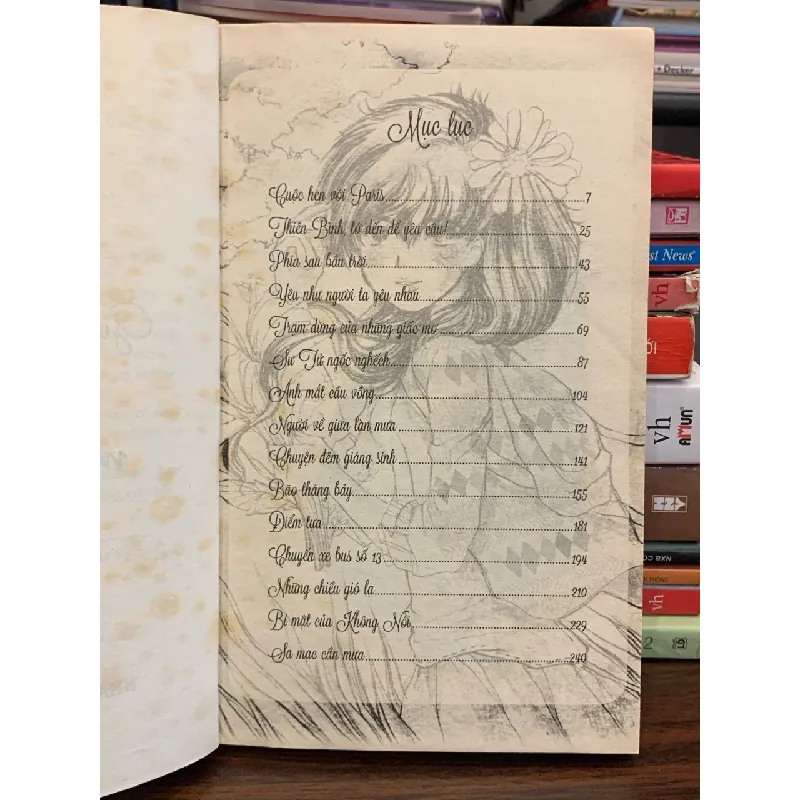 Mục lục
Cuộc hẹn với Paris 7
Thiên Bình, tớ đến để yêu cậu! 25
Phía sau bầu trời 43
Yêu như người ta yêu nhau 55
Trạm dừng của những giấc mơ 69
Sư Tử ngốc nghếch 87
Ánh mắt cầu vồng 104
Người về giữa làn mưa 121
Chuyện đêm giáng sinh 141
Bão tháng bảy 155
Điểm tựa 181
Chuyến xe bus số 13 194
Những chiều gió lạ 210
Bí mật của Không Nói 229
Sa mạc cần mưa 240
Decker
st News
vh
ỐI
vh
AMUN
NXB CO
vh
2